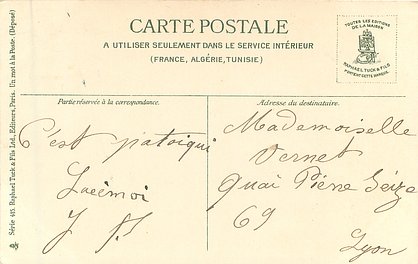 CARTE POSTALE
A UTILISER SEULEMENT DANS LE SERVICE INTÉRIEUR
(FRANCE, ALGÉRIE, TUNISIE)
TOUTES LES ÉDITIONS
DE LA MAISON
RAPHAEL TUCK & FILS
PORTENT CETTE MARQUE
Série 415 Raphael Tuck & Fils Ltd., Éditeurs, Paris. Un mot à la Poste. (Déposé)
Partie réservée à la correspondance.
C'est
Adresse du destinataire.
Mademoiselle
Vernet
Quai Pierre Seize
69
Lyon